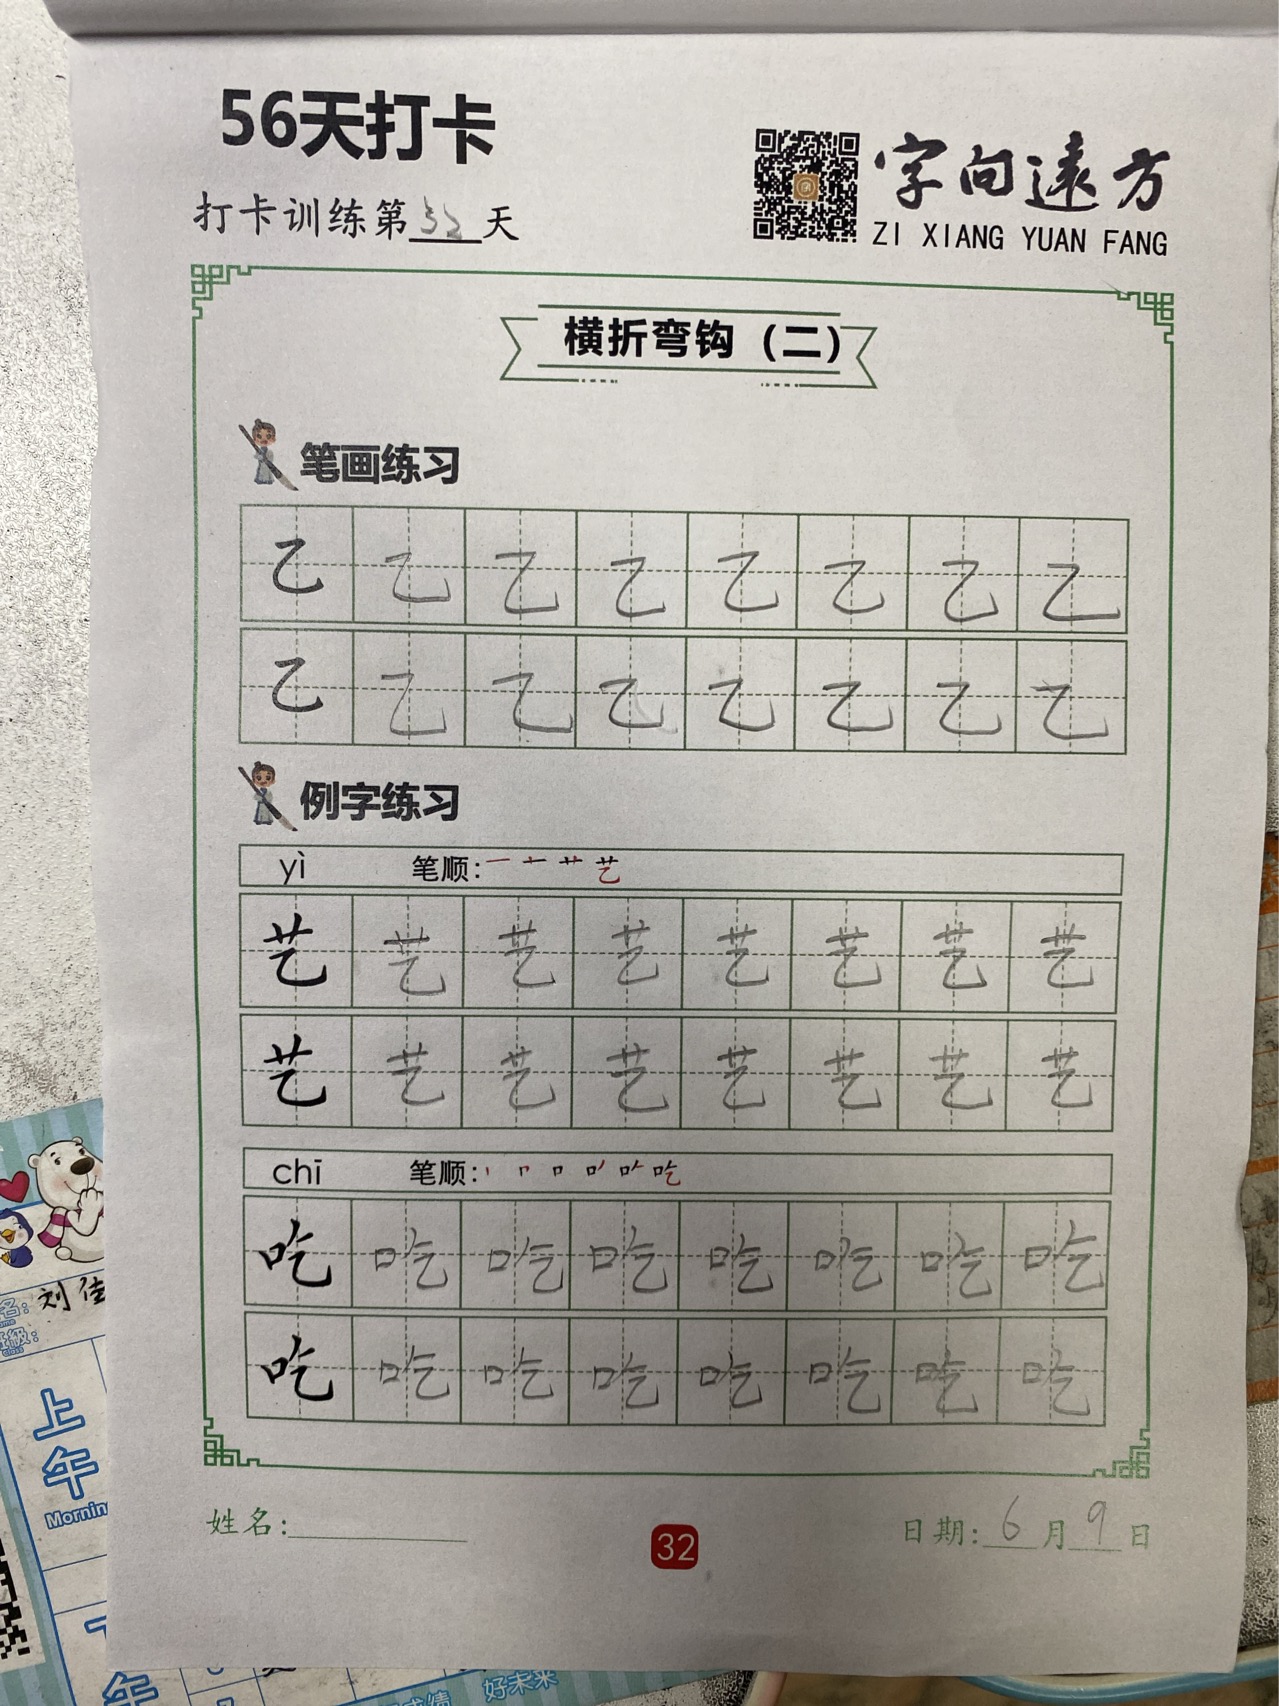 56天打卡
字向遠方
打卡训练第32天
ZI XIANG YUAN FANG
横折弯钩（二）
笔画练习
乙乙乙乙乙乙乙乙
乙乙乙乙乙乙乙乙
例字练习
yì 笔顺：一 十 艹 艺
艺艺艺艺艺艺艺艺
艺艺艺艺艺艺艺艺
chī 笔顺：丨 冂 口 吃
吃吃吃吃吃吃吃吃
吃吃吃吃吃吃吃吃
姓名： 32 日期：6月9日
名：刘佳
班级：
Class
上午
Mornin
午
好未来